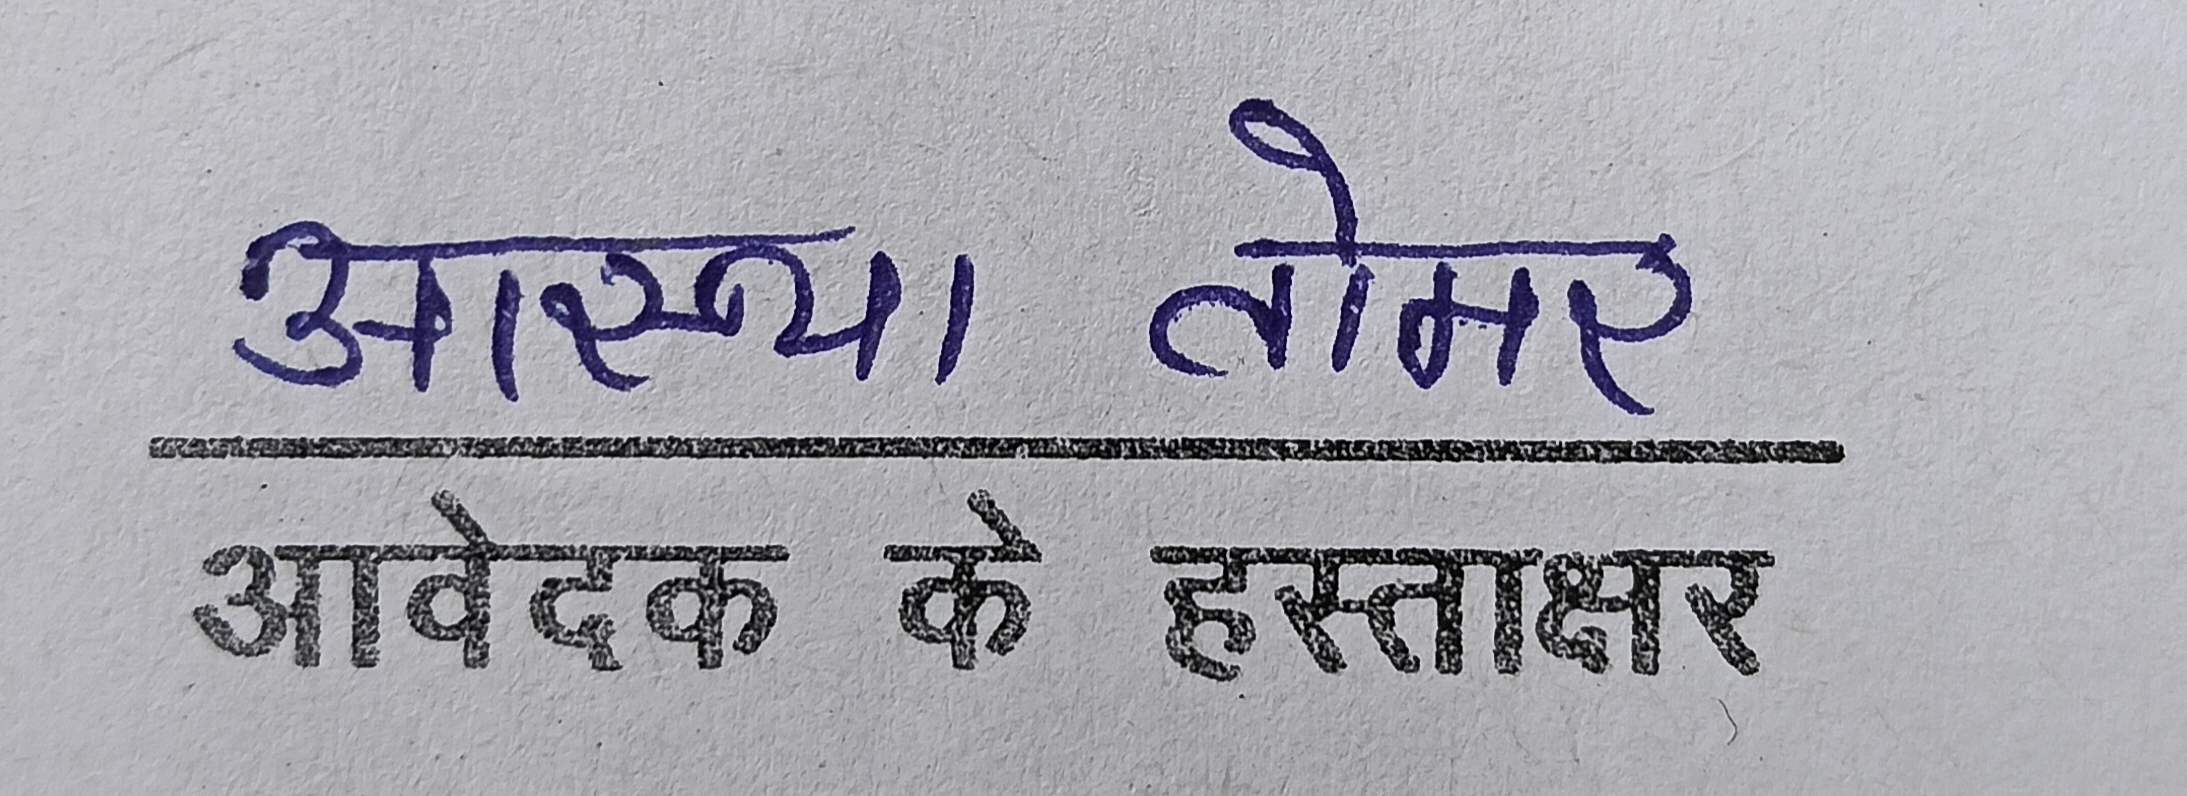 आस्था तोमर
आवेदक के हस्ताक्षर